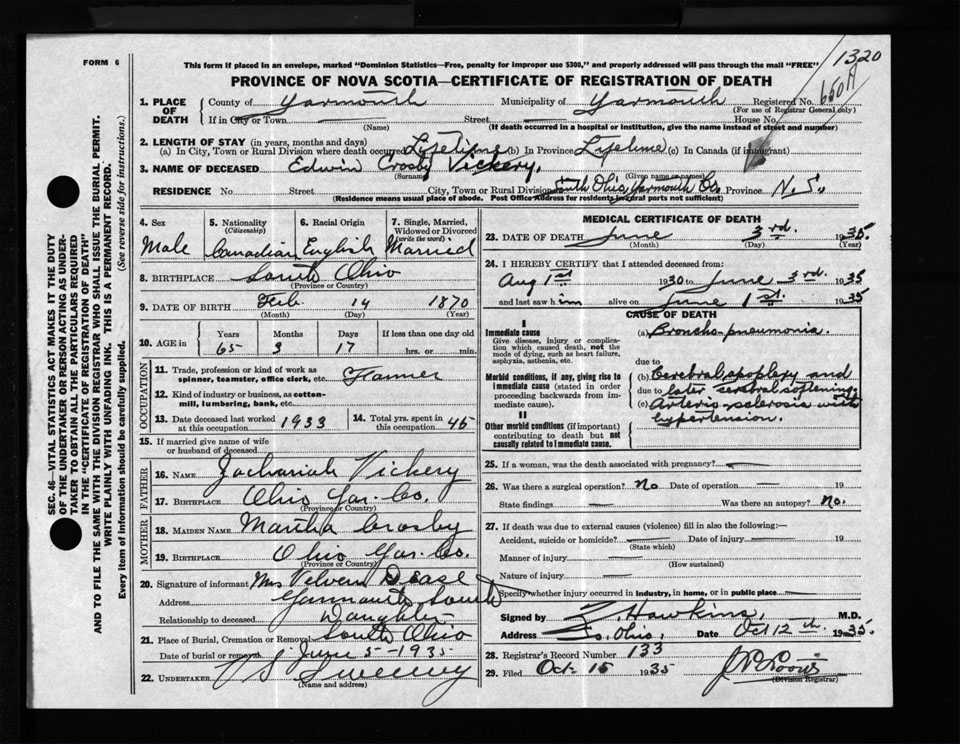 1320
FORM 6
This form if placed in an envelope, marked "Dominion Statistics—Free, penalty for improper use $300," and properly addressed will pass through the mail "FREE"
PROVINCE OF NOVA SCOTIA—CERTIFICATE OF REGISTRATION OF DEATH
1. PLACE OF DEATH
County of Yarmouth Municipality of Yarmouth Registered No.
(For use of Registrar General only)
If in City or Town — Street — House No.
(Name) (If death occurred in a hospital or institution, give the name instead of street and number)
2. LENGTH OF STAY (in years, months and days)
(a) In City, Town or Rural Division where death occurred Lifetime (b) In Province Lifetime (c) In Canada (if immigrant)
3. NAME OF DECEASED Edwin Crosby Vickery.
(Surname) (Given name or names)
RESIDENCE No. Street City, Town or Rural Division South Ohio, Yarmouth Co. Province N.S.
(Residence means usual place of abode. Post Office Address for residents in rural parts not sufficient)
SEC. 46—VITAL STATISTICS ACT MAKES IT THE DUTY
OF THE UNDERTAKER OR PERSON ACTING AS UNDER-
TAKER TO OBTAIN ALL THE PARTICULARS REQUIRED
IN THE "CERTIFICATE OF REGISTRATION OF DEATH"
AND TO FILE THE SAME WITH THE DIVISION REGISTRAR WHO SHALL ISSUE THE BURIAL PERMIT.
WRITE PLAINLY WITH UNFADING INK. THIS IS A PERMANENT RECORD.
Every item of information should be carefully supplied. (See reverse side for instructions.)
4. Sex
Male
5. Nationality
(Citizenship)
Canadian
6. Racial Origin
English
7. Single, Married,
Widowed or Divorced
(write the word)
Married
8. BIRTHPLACE South Ohio
(Province or Country)
9. DATE OF BIRTH Feb. 14 1870
(Month) (Day) (Year)
10. AGE in
Years Months Days If less than one day old
65 3 17 hrs. or min.
OCCUPATION
11. Trade, profession or kind of work as
spinner, teamster, office clerk, etc. Farmer
12. Kind of industry or business, as cotton-
mill, lumbering, bank, etc.
13. Date deceased last worked
at this occupation 1933
14. Total yrs. spent in
this occupation 45
15. If married give name of wife
or husband of deceased
FATHER
16. NAME Zachariah Vickery
17. BIRTHPLACE Ohio Yar. Co.
(Province or Country)
MOTHER
18. MAIDEN NAME Martha Crosby
19. BIRTHPLACE Ohio Yar. Co.
(Province or Country)
20. Signature of informant Mrs Velvern Dease
Address Yarmouth South
Relationship to deceased Daughter
21. Place of Burial, Cremation or Removal South Ohio
Date of burial or removal June 5-1935
22. UNDERTAKER Sweeney
(Name and address)
MEDICAL CERTIFICATE OF DEATH
23. DATE OF DEATH June 3rd. 1935
(Month) (Day) (Year)
24. I HEREBY CERTIFY that I attended deceased from:
Aug 1st 1930 to June 3rd. 1935
and last saw him alive on June 1st. 1935
CAUSE OF DEATH
I
Immediate cause
Give disease, injury or complica-
tion which caused death, not the
mode of dying, such as heart failure,
asphyxia, asthenia, etc.
(a) Broncho-pneumonia.
due to
Morbid conditions, if any, giving rise to
immediate cause (stated in order
proceeding backwards from im-
mediate cause).
(b) Cerebral apoplexy and
due to later cerebral softening.
(c) Arterio-sclerosis with
hypertension.
II
Other morbid conditions (if important)
contributing to death but not
causally related to immediate cause.
25. If a woman, was the death associated with pregnancy? —
26. Was there a surgical operation? No Date of operation — 19
State findings — Was there an autopsy? No.
27. If death was due to external causes (violence) fill in also the following:—
Accident, suicide or homicide? — Date of injury — 19
(State which)
Manner of injury —
(How sustained)
Nature of injury —
Specify whether injury occurred in industry, in home, or in public place —
Signed by Z. Hawkins, M.D.
Address So. Ohio, Date Oct 12th. 1935.
28. Registrar's Record Number 133
29. Filed Oct. 15 1935
(Division Registrar)